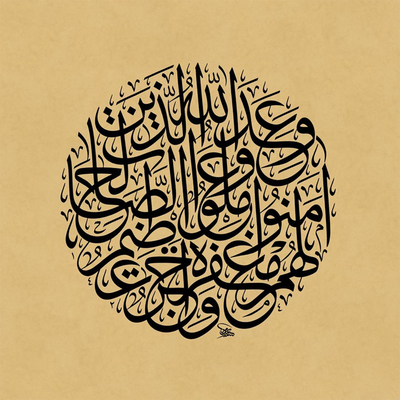 وَعَدَ اللّٰهُ الَّذِينَ
اٰمَنُوا وَعَمِلُوا الصَّالِحَاتِ
لَهُمْ مَغْفِرَةٌ وَاَجْرٌ عَظِيمٌ